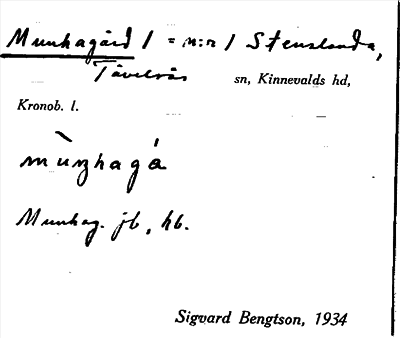 Munhagård / = n:r / Stenslanda,
Tävelsås sn, Kinnevalds hd,
Kronob. l.
mùnhagá
Munhag. jb, hb.
Sigvard Bengtson, 1934